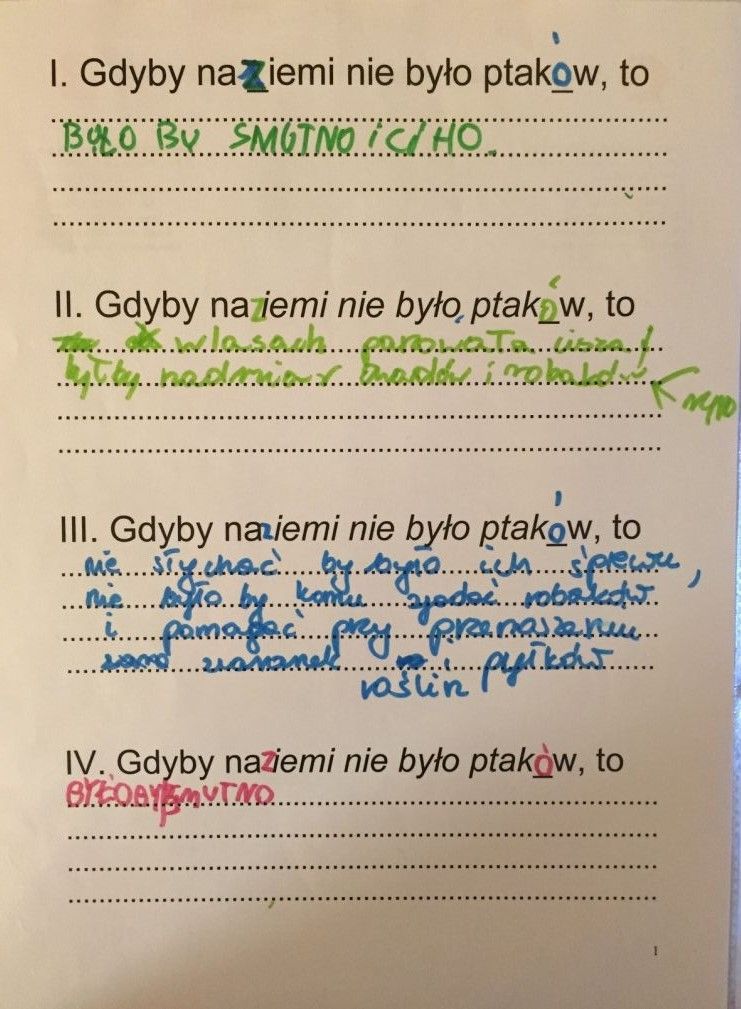 I. Gdyby na ziemi nie było ptaków, to
BYŁO BY SMUTNO i CIHO.
II. Gdyby na ziemi nie było ptaków, to
w lasach panowała cisza /
byłby nadmiar owadów i robaków
III. Gdyby na ziemi nie było ptaków, to
nie słychać by było ich śpiewu,
nie było by komu zjadać robaków
i pomagać przy przenaszaniu
ziaranek i pyłków
roślin
IV. Gdyby na ziemi nie było ptaków, to
BYŁOBY SMUTNO
1